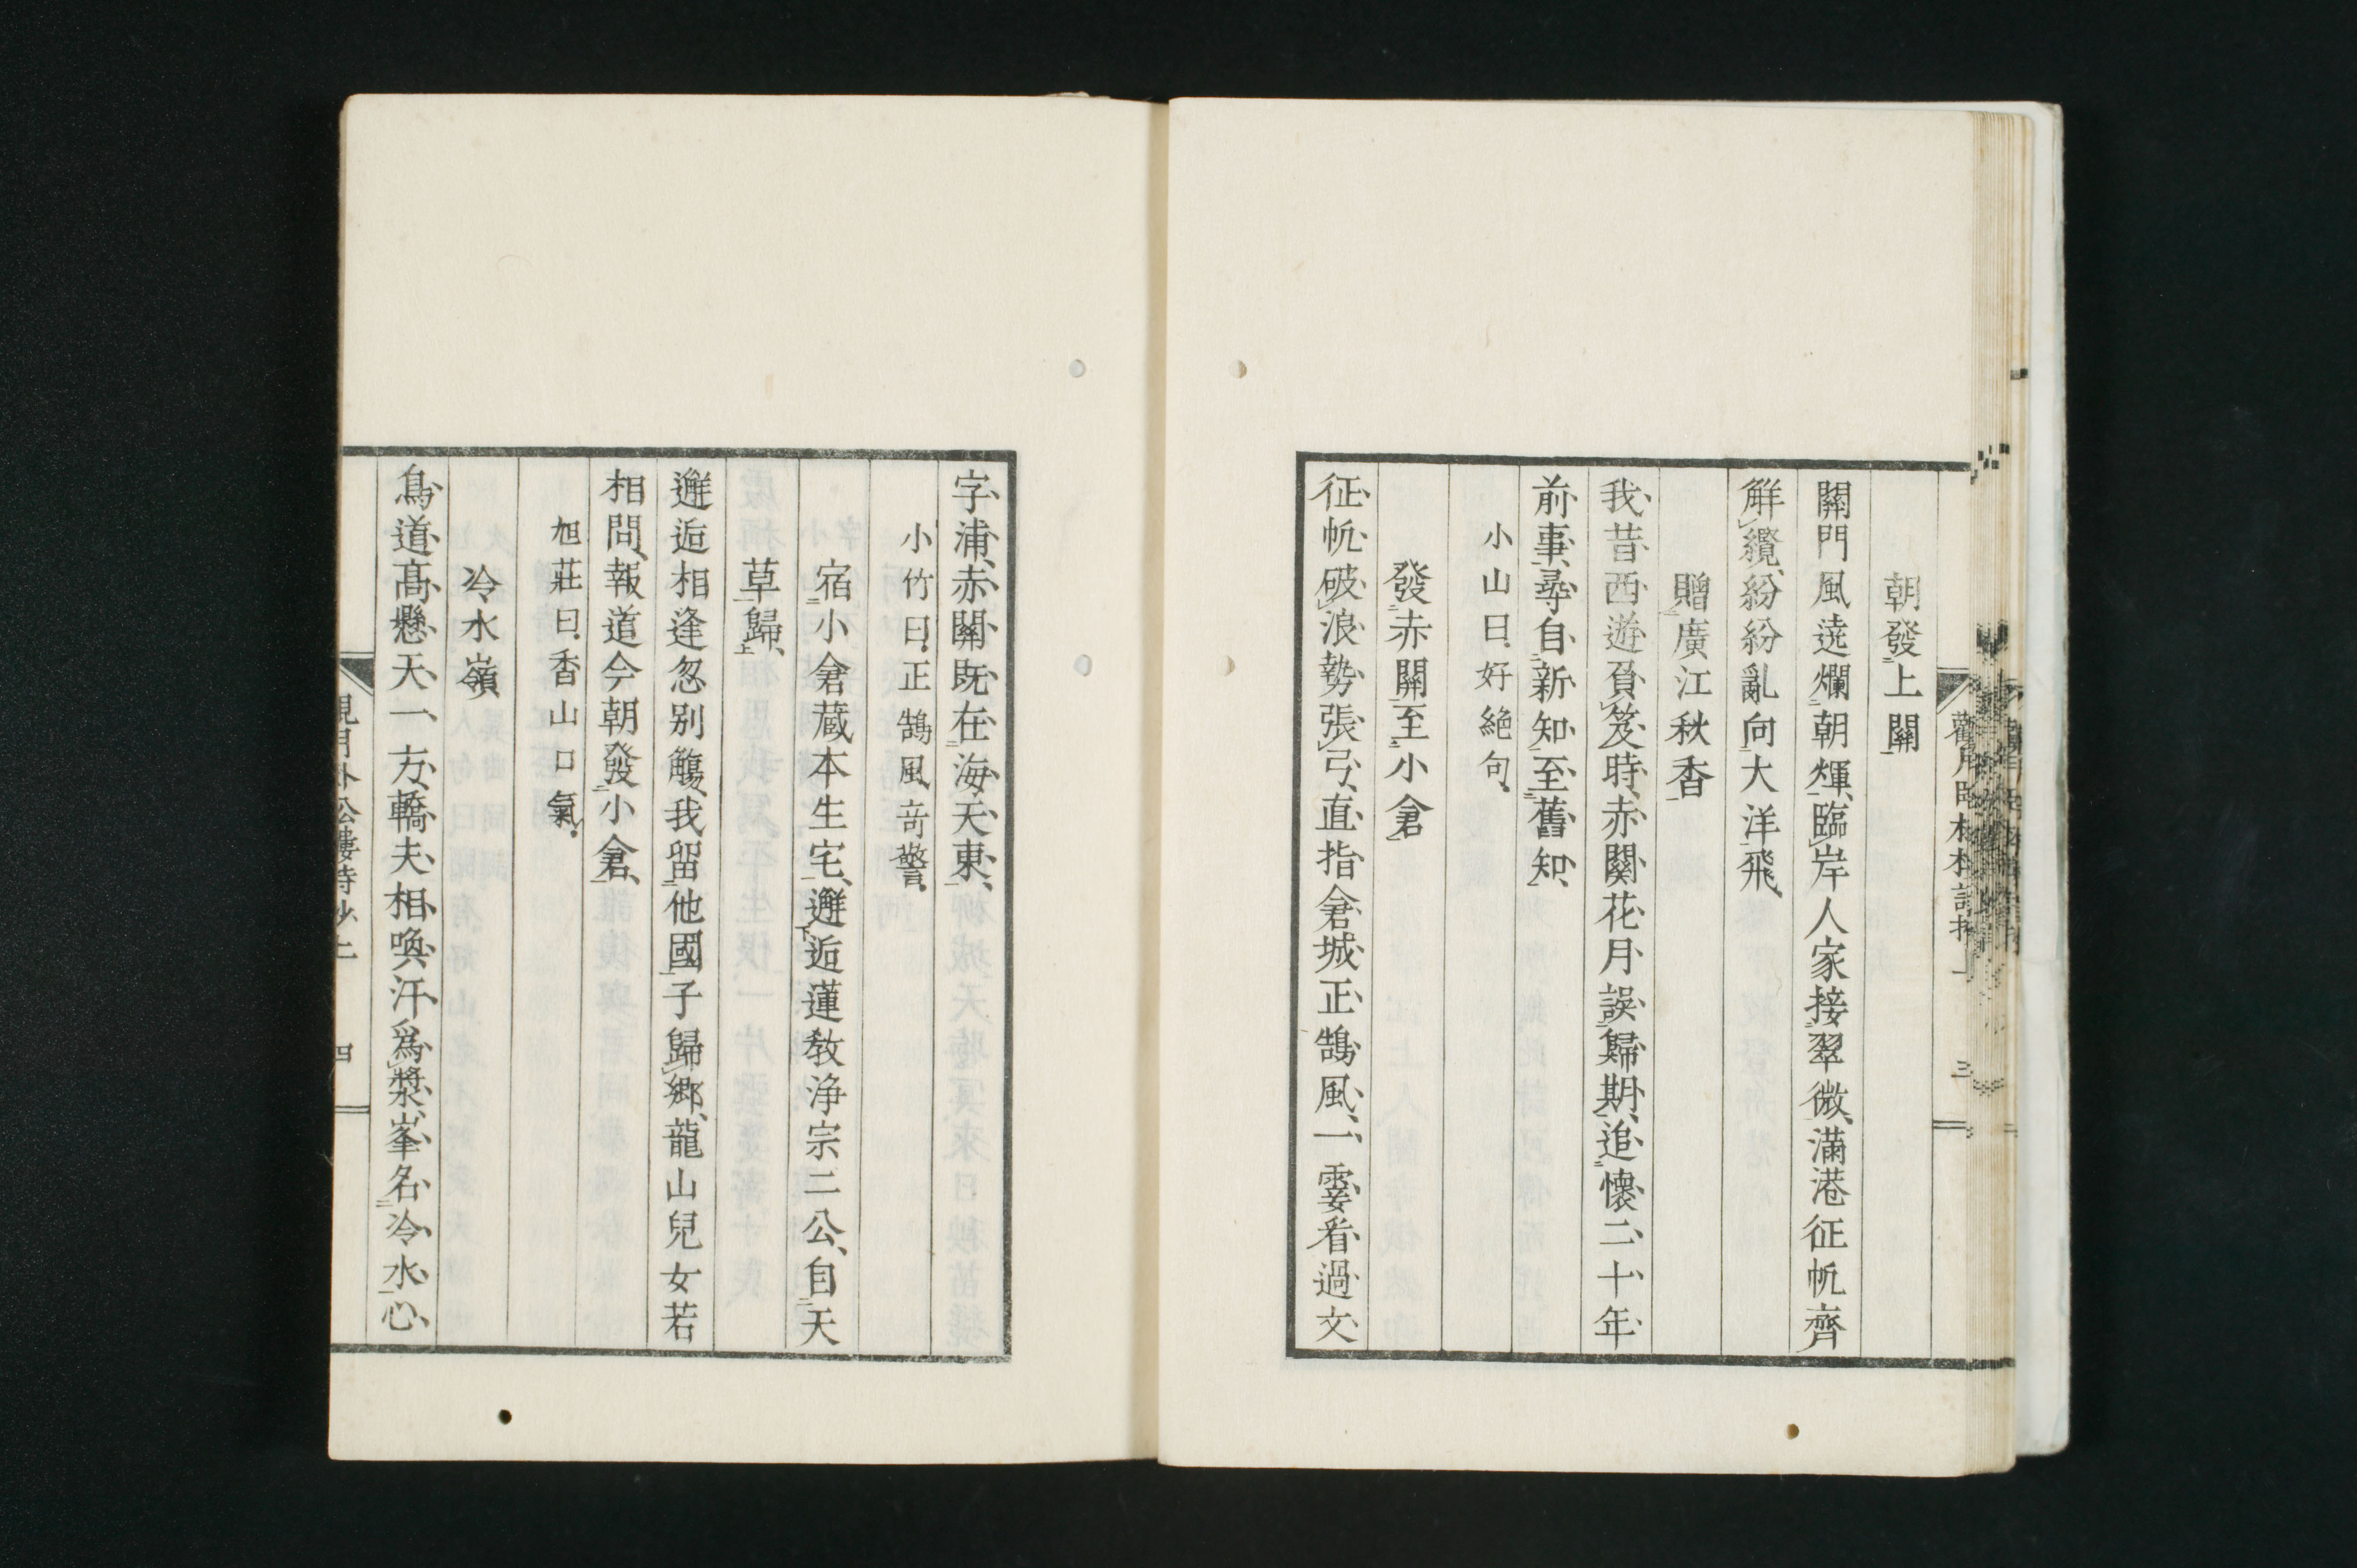 朝發上關
關門風遶爛朝煇臨岸人家接翠微滿港征帆齊
解纜紛紛亂向大洋飛
贈廣江秋香
我昔西遊負笈時赤關花月誤歸期追懷二十年
前事尋自新知至舊知
小山曰好絕句
發赤關至小倉
征帆破浪勢張弓直指倉城正鵠風一霎看過文
字浦赤關既在海天東
小竹曰正鵠風奇警
宿小倉蔵本生宅邂逅蓮教浄宗二公自天
草歸
邂逅相逢忽別觴我留他國子歸鄉龍山兒女若
相問報道今朝發小倉
旭莊曰香山口氣
冷水嶺
鳥道高懸天一方轎夫相喚汗為漿峯名冷水心
四
三